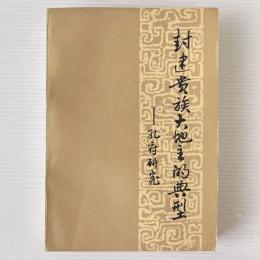 封建贵族大地主的典型
——孔府研究